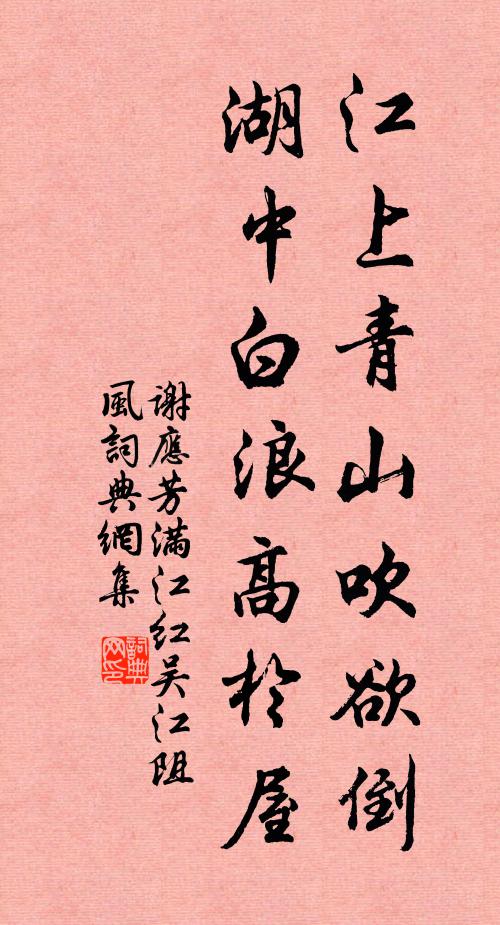 江上青山吹欲倒
湖中白浪高於屋
謝應芳满江红吴江阻
風詞典網集
詞典
网印